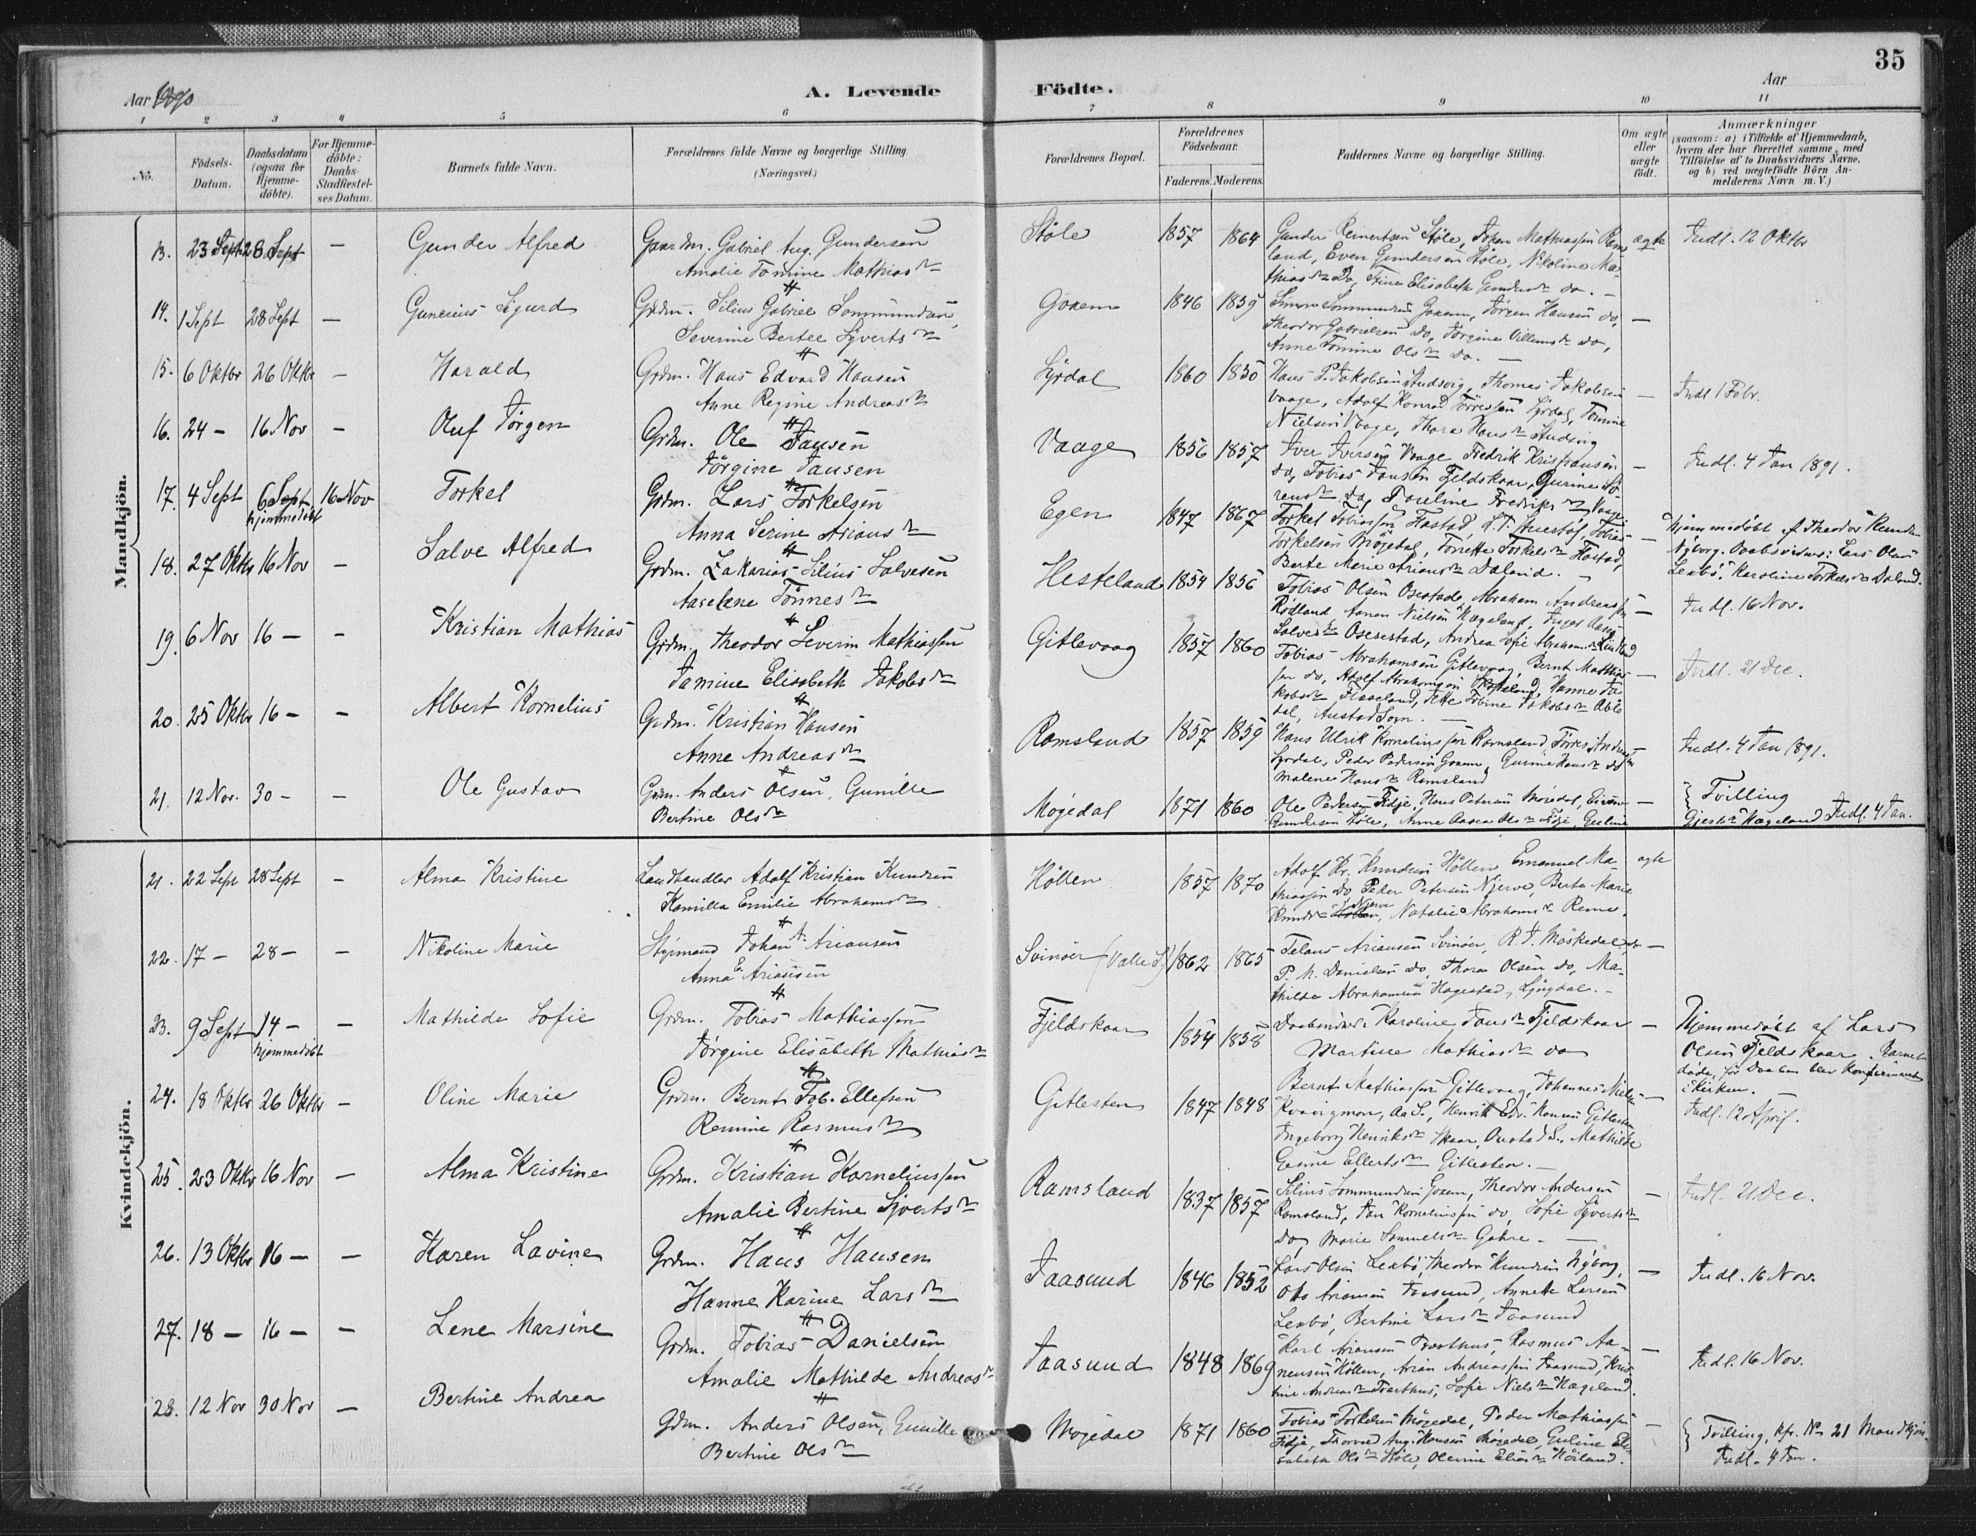 35
Aar 1890
A. Levende Födte.
Aar
1 2 3 4 5 6 7 8 9 10 11
No.
Födsels-Datum.
Daabsdatum (ogsaa for Hjemme-döbte).
For Hjemme-döbte: Daabs-Stadfæstel-ses Datum.
Barnets fulde Navn.
Forældrenes fulde Navne og borgerlige Stilling. (Næringsvei.)
Forældrenes Bopæl.
Forældrenes Födselsaar.
Faderens. Moderens.
Faddernes Navne og borgerlige Stilling.
Om ægte eller uægte födt.
Anmærkninger
(saasom: a) i Tilfælde af Hjemmedaab,
hvem der har forrettet samme, med
Tilföielse af to Daabsvidners Navne,
og b) ved uægtefödte Börn An-
melderens Navn m. V.)
Mandkjön.
13. 23 Sept 28 Sept — Gunder Alfred
Gaardm. Gabriel Aug. Gundersen
Amalie Tomine Mathiasdr
Støle 1857 1864
Gunder Reinertsen Støle, Johan Mathiassen Rams
land, Even Gundersen Støle, Nikoline Ma-
thiasdr Do, Stine Elisabeth Gundersdr do. —
ægte Indl. 12 Oktbr
14. 1 Sept 28 Sept — Gunerius Sigurd
Grdm. Silius Gabriel Sommundsen,
Severine Bertee Syvertsdr
Goxem 1846 1859
Simon Sommundsen Goxem, Jørgen Hansen do,
Theodor Gabrielsen do, Jørgine Villumsdr do,
Anne Tomine Olsdr do. —
—
15. 6 Oktbr 26 Oktbr — Harald
Grdm. Hans Edvard Hansen
Anne Regine Andreasdr
Syrdal 1860 1850
Hans P. Jakobsen Studsvig, Thomas Jakobsen
Vaage, Adolf Konrad Tørressen Syrdal, Tomine
Nielsen Vaage, Thora Hansdr Studsvig
— Indl 1 Febr.
16. 24 — 16 Nov — Oluf Jørgen
Grdm. Ole Jansen
Jörgine Jansen
Vaage 1856 1857
Iver Iversen Vaage Fredrik Kristiansen
do, Tobias Jansen Fjeldskaar, Gurine Sö-
rensdr do, Foreline Fredriksdr Vaage
— Indl. 4 Jan 1891.
17. 4 Sept 6 Sept hjemmedöbt 16 Nov Torkel
Grdm. Lars Torkelsen
Anna Serine Ariansdr
Egen 1847 1867
Torkel Tobiassen Haastad, Tobias
Torkelsen Møgedal, Torrette Torkelsdr Haastad,
Berte Marie Ariansdr Daland. —
— Hjemmedöbt af Theodor Knudsen
Nyborg. Daabsvidner: Lars Olsen
Lexbö, Karoline Torkelsdr Daland.
18. 27 Oktbr 16 Nov — Salve Alfred
Grdm. Zakarias Silius Salvesen
Aaselene Tönnesdr
Hesteland 1854 1856
Tobias Olsen Osestad, Abraham Andreassen
Rödland, Aanen Nielsen Hægeland, Inger Aase
Salvesdr Osestad, Andrea Sofie Abrahamsdr
— Indl. 16 Nov.
19. 6 Nov 16 — — Kristian Mathias
Grdm. Theodor Severin Mathiassen
Tamine Elisabeth Jakobsdr
Gitlevaag 1857 1860
Tobias Abrahamsen Gitlevaag, Bernt Matthias-
sen do, Adolf Abrahamsen, Hanne Ja-
kobsdr, Jette Tobine Jakobsdr
dal, Austad Sogn. —
— Indl. 21 Dec.
20. 25 Oktbr 16 — — Albert Kornelius
Grdm. Kristian Hansen
Anne Andreasdr
Ramsland 1857 1859
Hans Ulrik Korneliussen Ramsland, Törres Andreassen
Syrdal, Peder Pedersen Goxem, Gurine Hansdr do
Malene Hansdr Ramsland
— Indl. 4 Jan 1891.
21. 12 Nov. 30 — — Ole Gustav
Grdm. Anders Olsen, Gunille
Bertine Olsdr
Møgedal 1871 1860
Ole Pedersen Fidje, Hans Petersen Møgedal, Even
Gundersen Støle, Anne Aasea Olsdr Fidje, Guline
— Tvilling
Hægeland Indl. 4 Jan.
Kvindekjön.
21. 22 Sept 28 Sept — Alma Kristine
Landhandler Adolf Kristian Knudsen
Kamilla Emilie Abrahamsdr
Höllen 1857 1870
Adolf Kr. Knudsen Höllen, Emanuel Ma-
thiassen do, Peder Petersen Njerve, Berte Marie
Knudsdr Njerve, Natalie Abrahamsdr Reme.
ægte
22. 17 — 28 — — Nikoline Marie
Styrmand Johan A. Ariansen
Anna E. Ariansen
Svinøer (Valle S.) 1862 1865
Telans Ariansen Svinöer, R. T. Möskedal, do
P. M. Danielsen do, Thora Olsen do, Ma-
thilde Abrahamsen Hagestad, Lyngdal. —
—
23. 9 Sept 14 — hjemmedöbt — Mathilde Sofie
Grdm. Tobias Mathiassen
Jörgine Elisabeth Mathiasdr
Fjeldskaar 1854 1858
Daabsvidner: Karoline Jansdr Fjeldskaar
Martine Mathiasdr do
— Hjemmedöbt af Lars
Olsen Fjeldskaar. Barnet
døde, før Daaben blev konfirmeret
i Kirken.
24. 18 Oktbr 26 Oktbr — Oline Marie
Grdm. Bernt Tob. Ellefsen
Remine Rasmusdr
Gitlesten 1847 1848
Bernt Mathiassen Gitlevaag, Johannes Nielsen
Kvavigmoen, Aa S., Henrik Edv. Hansen Gitlesten
Ingeborg Henriksdr Skaar, Oustad S., Mathilde
Gurine Ellertsdr Gitlesten. —
— Indl. 12 April.
25. 23 Oktbr 16 Nov — Alma Kristine
Grdm. Kristian Korneliussen
Amalie Bertine Sjvertsdr
Ramsland 1837 1857
Silius Sommundsen Goxem, Theodor Andersen
Ramsland, Jan Korneliussen do, Sofie Sjvertsdr
do, Marie Samuelsdr Gahre. —
— Indl. 21 Dec.
26. 13 Oktbr 16 — — Karen Lavine
Grdm. Hans Hansen
Hanne Karine Larsdr
Faasund 1846 1852
Lars Olsen Lexbö, Theodor Knudsen Nyborg,
Ole Ariansen Faasund, Annette Larsen
Lexbö, Bertine Larsdr Faasund
— Indl. 16 Nov.
27. 18 — 16 — — Lene Marsine
Grdm. Tobias Danielsen
Amalie Mathilde Andreasdr
Faasund 1848 1869
Karl Ariansen Tvarthus, Rasmus Aa-
nensen Höllen, Arian Andreassen Faasund, Kris-
tine Andreasdr Tvarthus, Sofie Nielsdr Hægeland.
— Indl. 16 Nov.
28. 12 Nov 30 Nov — Bertine Andrea
Gdm. Anders Olsen, Gunille
Bertine Olsdr
Møgedal 1871 1860
Tobias Torkelsen Møgedal, Peder Mathiassen
Fidje, Thorvald Aug. Hansen Møgedal, Guline Eli-
sabeth Olsdr Støle, Olevine Eliasdr Höiland.
— Tvilling, kfr. No 21 Mandkjön.
Indl. 4 Jan.